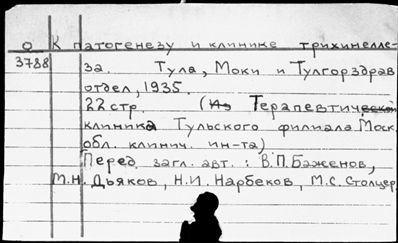 О К патогенезу и клинике трихинелле-
3788 за. Тула, Моки и Тулгорздрав
отдел, 1935.
22 стр. (Из Терапевтической
клиника Тульского филиала Моск.
обл. клинич. ин-та)
Перед загл. авт.: В.П. Баженов,
М.Н. Дьяков, Н.И. Нарбеков, М.С. Столцер